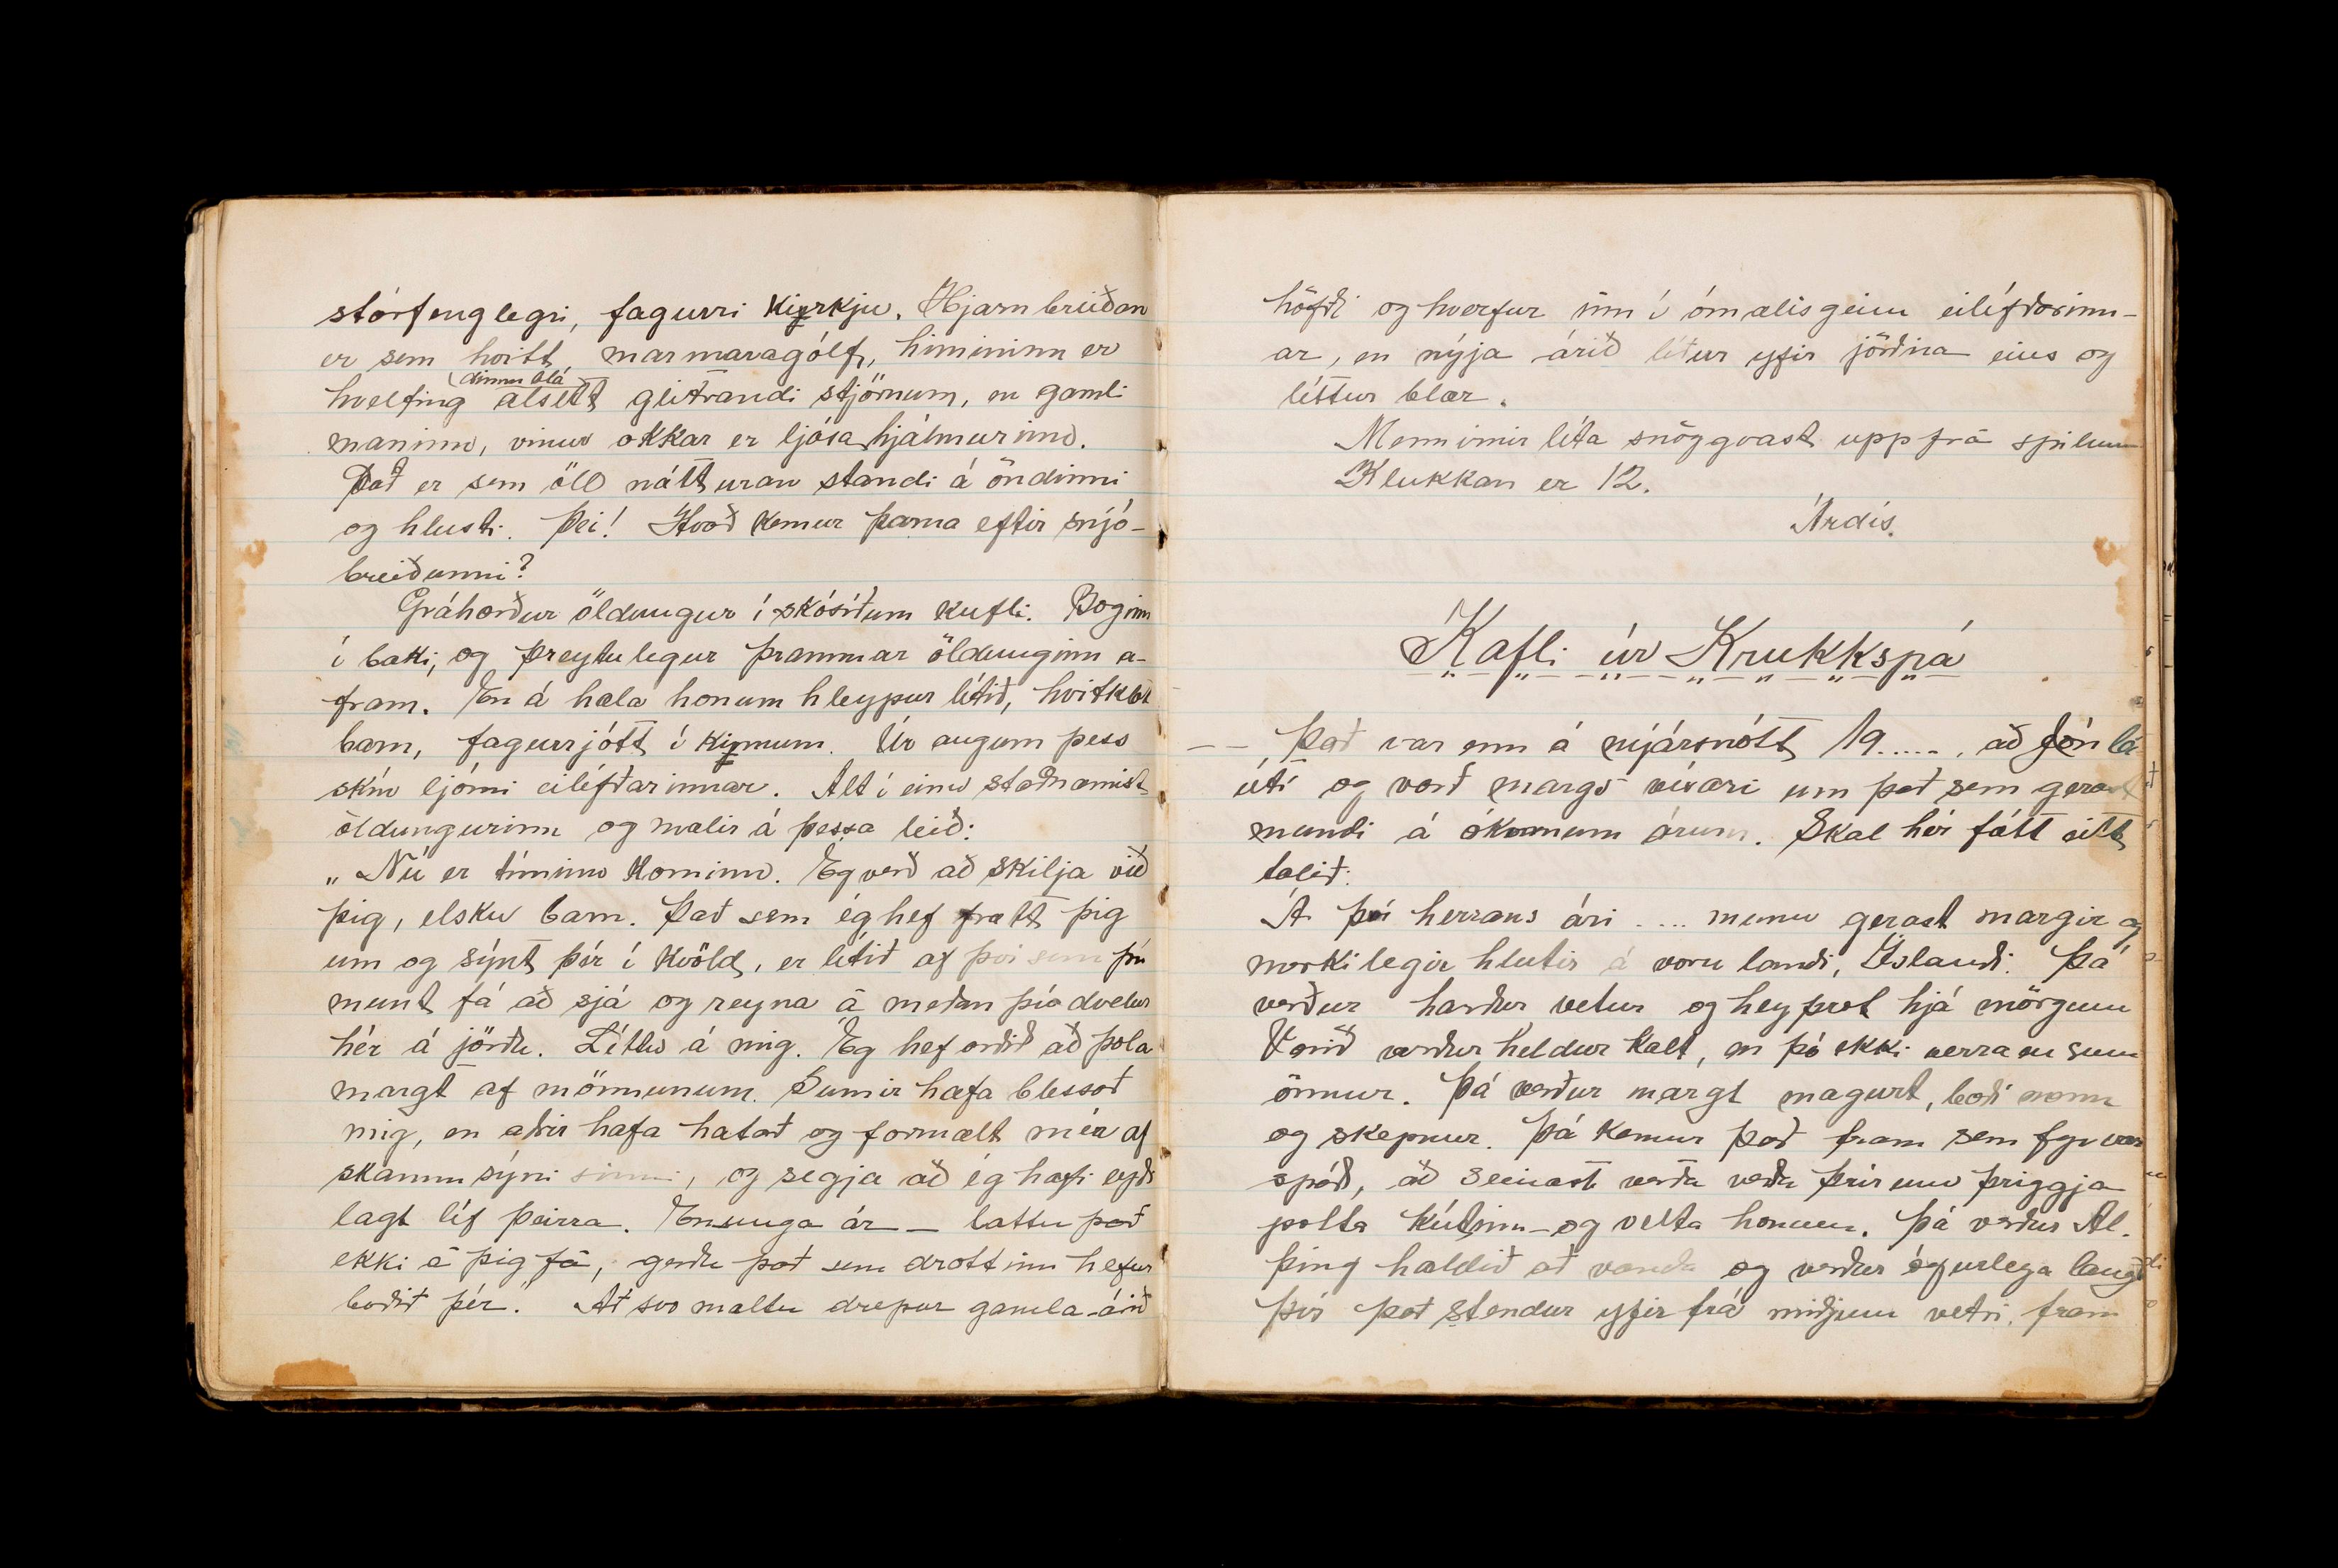 stórfenglegri, fagurri kirkju. Hjarnbreiðan
er sem hvítt marmaragólf, himininn er
dimmblá
hvelfing alsett glitrandi stjörnum, en gamli
máninn, vinur okkar er ljósahjálmurinn.
Það er sem öll náttúran standi á öndinni
og hlusti. Þei! Hvað kemur þarna eftir snjó-
breiðunni?
Gráhærður öldungur í skósíðum kufli. Boginn
í baki, og þreytulegur þrammar öldunginn á-
fram. En á hæla honum hleypur lítið, hvítklætt
barn, fagurrjótt í kinnum. Úr augum þess
skín ljómi eilífðarinnar. Alt í einu staðnæmist
öldungurinn og mælir á þessa leið:
„Nú er tíminn kominn. Ég verð að skilja við
þig, elsku barn. Það sem ég hef frætt þig
um og sýnt þér í kvöld, er lítið af því sem þú
munt fá að sjá og reyna á meðan þú dvelur
hér á jörðu. Líttu á mig. Ég hef orðið að þola
margt af mönnunum. Sumir hafa blessað
mig, en aðrir hafa hatað og formælt mér af
skammsýni sinni, og segja að ég hafi eyði
lagt líf þeirra. En unga ár — láttu það
ekki á þig fá, gerðu það sem drottinn hefur
boðið þér." Að svo mæltu drepur gamla-árið
höfði og hverfur inn í ómælisgeim eilífðarinn-
ar, en nýja árið lítur yfir jörðina eins og
léttur blær.
Mennirnir líta snöggvast upp frá spilum
Klukkan er 12.
Árdís.
Kafli úr Krukkspá
— — Það var enn á nýjársnótt 19....., að Jón lá
úti og varð margs vísari um það sem gerast
mundi á ókomnum árum. Skal hér fátt eitt
talið:
Á því herrans ári .... munu gerast margir og
merkilegir hlutir á voru landi, Íslandi. Þá
verður harður vetur og heyþrot hjá mörgum
Vorið verður heldur kalt, en þó ekki verra en sum
önnur. Þá verður margt magurt, bæði menn
og skepnur. Þá kemur það fram sem fyr var
spáð, að seinast verða verða þrír um þriggja
potta kútinn og velta honum. Þá verður Al-
þing haldið að vanda og verður ógurlega langt
því það stendur yfir frá miðjum vetri, fram